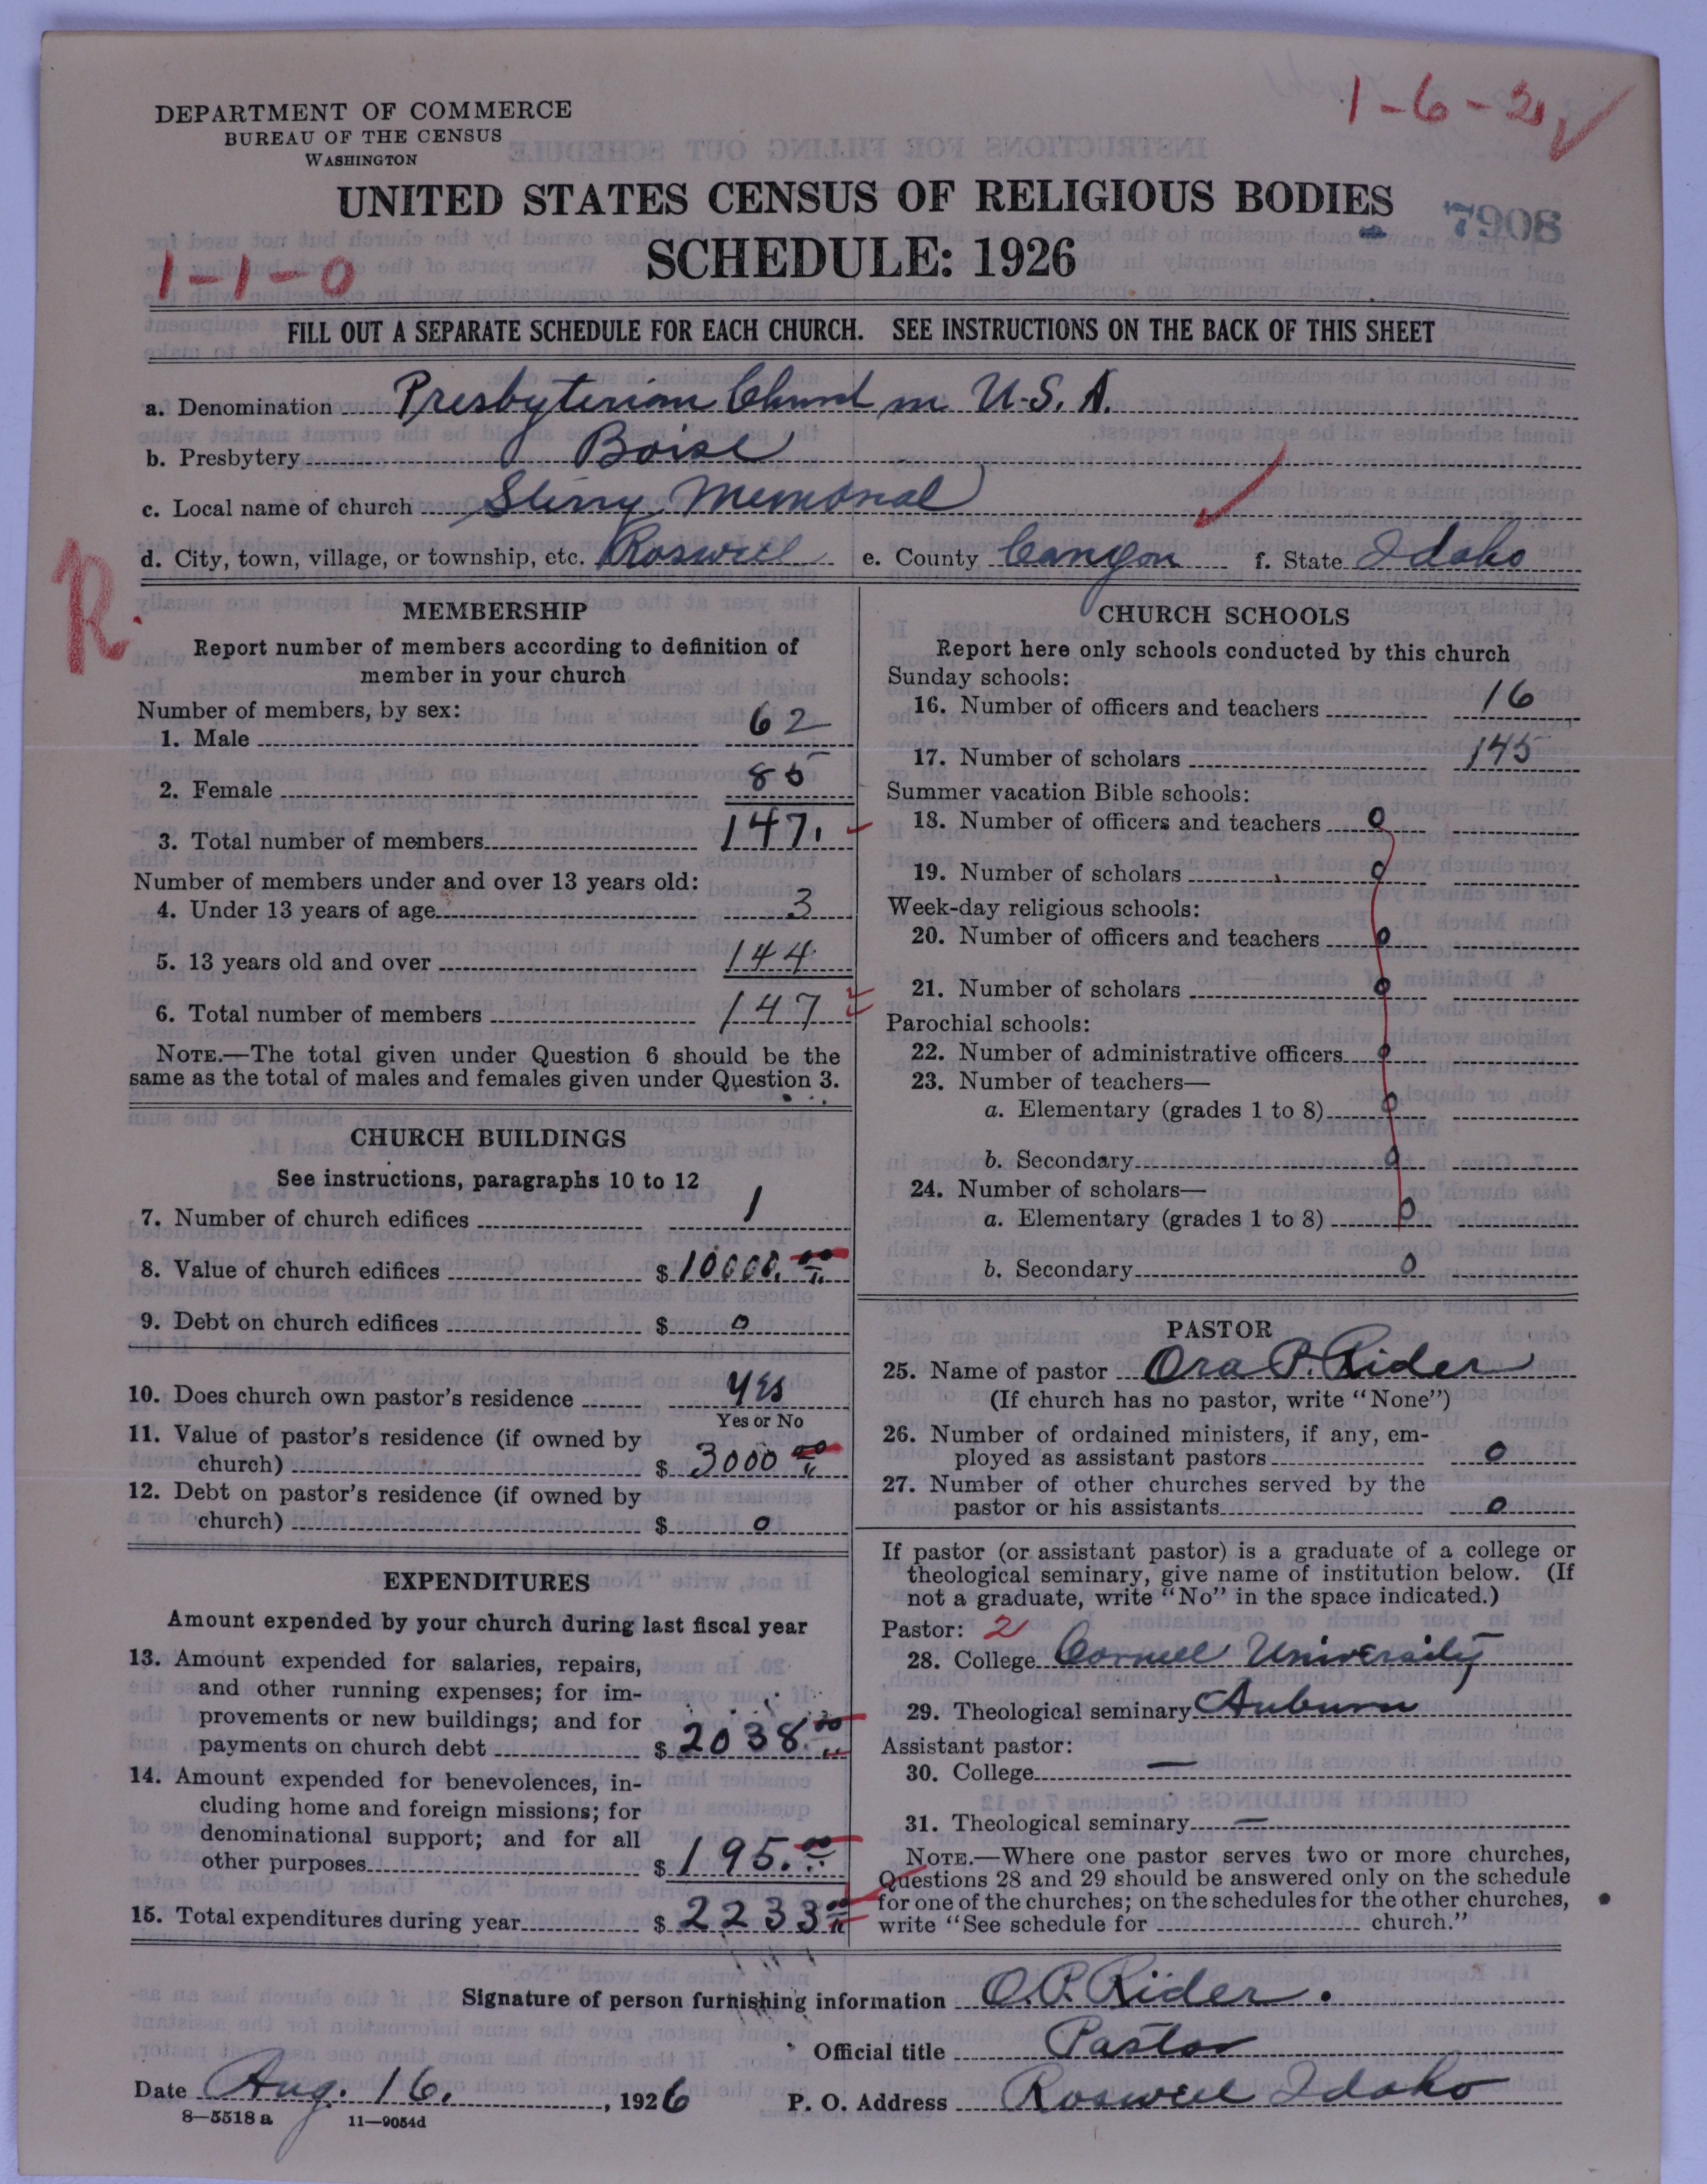 1-6-2 ✓
DEPARTMENT OF COMMERCE
BUREAU OF THE CENSUS
WASHINGTON
UNITED STATES CENSUS OF RELIGIOUS BODIES
7908
SCHEDULE: 1926
1-1-0
FILL OUT A SEPARATE SCHEDULE FOR EACH CHURCH. SEE INSTRUCTIONS ON THE BACK OF THIS SHEET
a. Denomination Presbyterian Church in U.S.A.
b. Presbytery Boise
c. Local name of church Memorial
d. City, town, village, or township, etc. Roswell e. County Canyon f. State Idaho
R.
MEMBERSHIP
Report number of members according to definition of
member in your church
Number of members, by sex:
1. Male 62
2. Female 85
3. Total number of members 147.
Number of members under and over 13 years old:
4. Under 13 years of age 3
5. 13 years old and over 144
6. Total number of members 147
NOTE.—The total given under Question 6 should be the
same as the total of males and females given under Question 3.
CHURCH BUILDINGS
See instructions, paragraphs 10 to 12
7. Number of church edifices 1
8. Value of church edifices $ 10000.00
9. Debt on church edifices $ 0
10. Does church own pastor's residence yes
Yes or No
11. Value of pastor's residence (if owned by
church) $ 3000 00
12. Debt on pastor's residence (if owned by
church) $ 0
EXPENDITURES
Amount expended by your church during last fiscal year
13. Amount expended for salaries, repairs,
and other running expenses; for im-
provements or new buildings; and for
payments on church debt $ 2038.00
14. Amount expended for benevolences, in-
cluding home and foreign missions; for
denominational support; and for all
other purposes $ 195.00
15. Total expenditures during year $ 2233 00
CHURCH SCHOOLS
Report here only schools conducted by this church
Sunday schools:
16. Number of officers and teachers 16
17. Number of scholars 145
Summer vacation Bible schools:
18. Number of officers and teachers 0
19. Number of scholars 0
Week-day religious schools:
20. Number of officers and teachers 0
21. Number of scholars 0
Parochial schools:
22. Number of administrative officers 0
23. Number of teachers—
a. Elementary (grades 1 to 8) 0
b. Secondary 0
24. Number of scholars—
a. Elementary (grades 1 to 8) 0
b. Secondary 0
PASTOR
25. Name of pastor Ora P. Rider
(If church has no pastor, write "None")
26. Number of ordained ministers, if any, em-
ployed as assistant pastors 0
27. Number of other churches served by the
pastor or his assistants 0
If pastor (or assistant pastor) is a graduate of a college or
theological seminary, give name of institution below. (If
not a graduate, write "No" in the space indicated.)
Pastor: 2
28. College Cornell University
29. Theological seminary Auburn
Assistant pastor:
30. College —
31. Theological seminary —
NOTE.—Where one pastor serves two or more churches,
Questions 28 and 29 should be answered only on the schedule
for one of the churches; on the schedules for the other churches,
write "See schedule for church."
Signature of person furnishing information O.P. Rider.
Official title Pastor
Date Aug. 16. , 1926 P. O. Address Roswell Idaho
8—5518 a 11—9054d